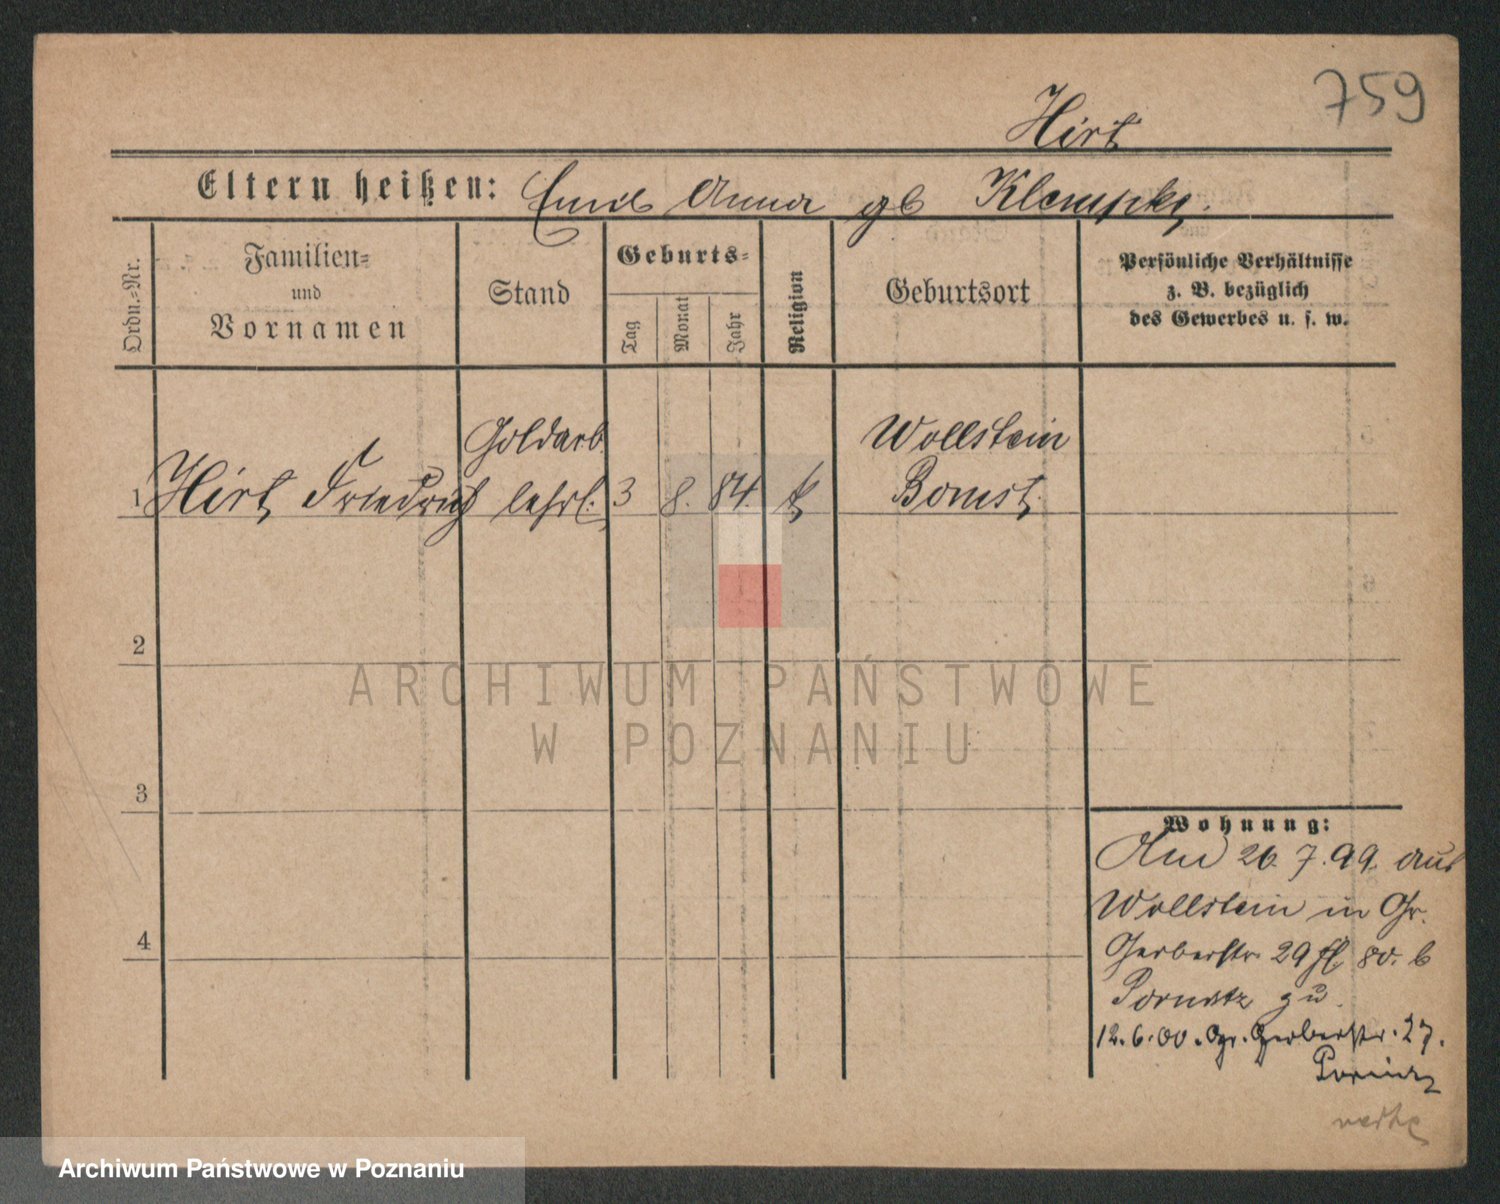 759
Hirt
Eltern heißen: Emil Anna gb Klempke.
Ordn.-Nr.
Familien-
und
Vornamen
Stand
Geburts-
Tag
Monat
Jahr
Religion
Geburtsort
Persönliche Verhältnisse
z. B. bezüglich
des Gewerbes u. s. w.
Goldarb. Wollstein
1 Hirt Friedrich lehrl. 3 8. 84. k Bomst.
2
ARCHIWUM PAŃSTWOWE
W POZNANIU
3
Wohnung:
Am 26. 7. 99. aus
Wollstein in Gr.
4
Gerberstr. 29 b
zu.
12.6.00. Gr. Gerberstr. 27.
Archiwum Państwowe w Poznaniu